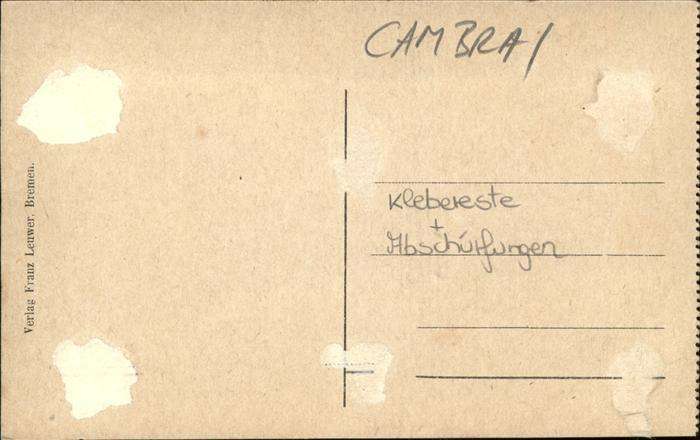 CAMBRAI
Klebereste
+
Abschürfungen
Verlag Franz Leuwer, Bremen.